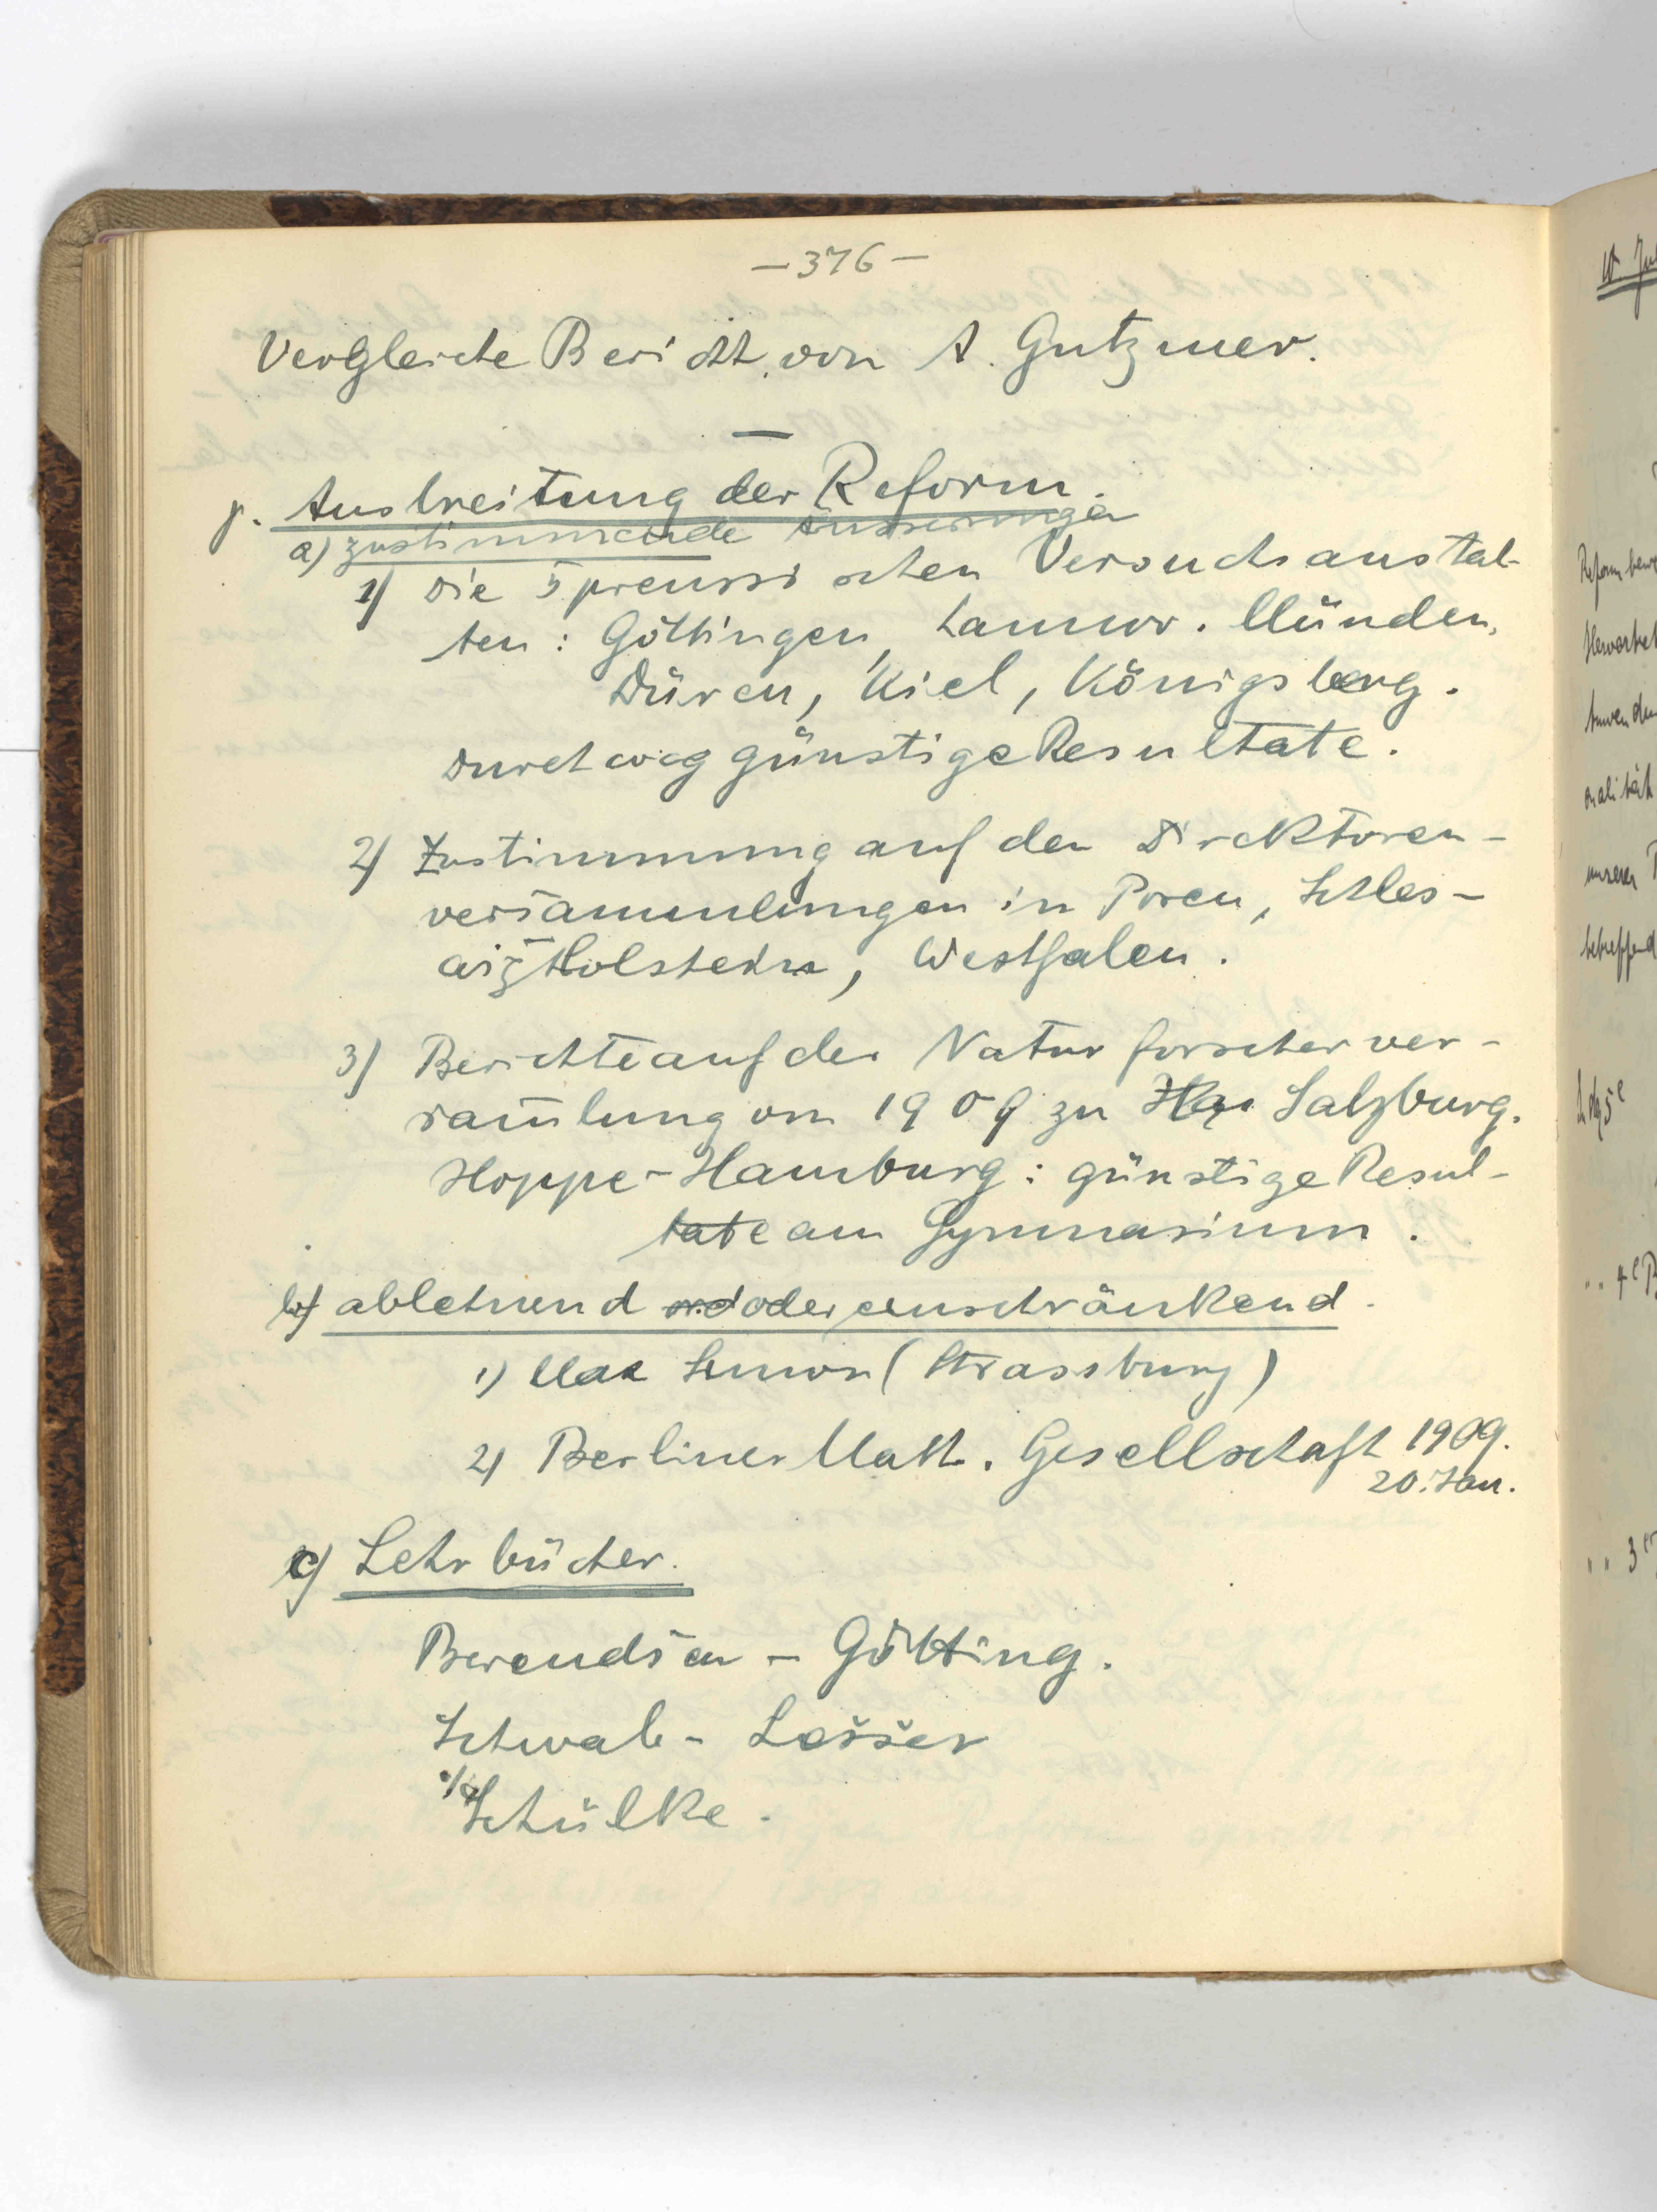 — 376 —
Vergleiche Bericht von A. Gutzmer.
γ. Ausbreitung der Reform.
a) zustimmende Äusserungen
1) Die 5 preussischen Versuchsanstal-
ten: Göttingen, Hannov. Münden,
Düren, Kiel, Königsberg.
Durchweg günstige Resultate.
2) Zustimmung auf den Direktoren-
versammlungen in Posen, Schles-
wig-Holstein, Westfalen.
3) Berichte auf der Naturforscherver-
sam̄lung von 1909 zu Salzburg.
Hoppe-Hamburg: günstige Resul-
tate am Gymnasium.
b) ablehnend oder einschränkend.
1) Max Simon (Strassburg)
2) Berliner Math. Gesellschaft 1909.
20. Jan.
c) Lehrbücher.
Berendsen - Götting.
Schwab - Lesser
Schülke.
10. Jul
Reformbewe
betreffend